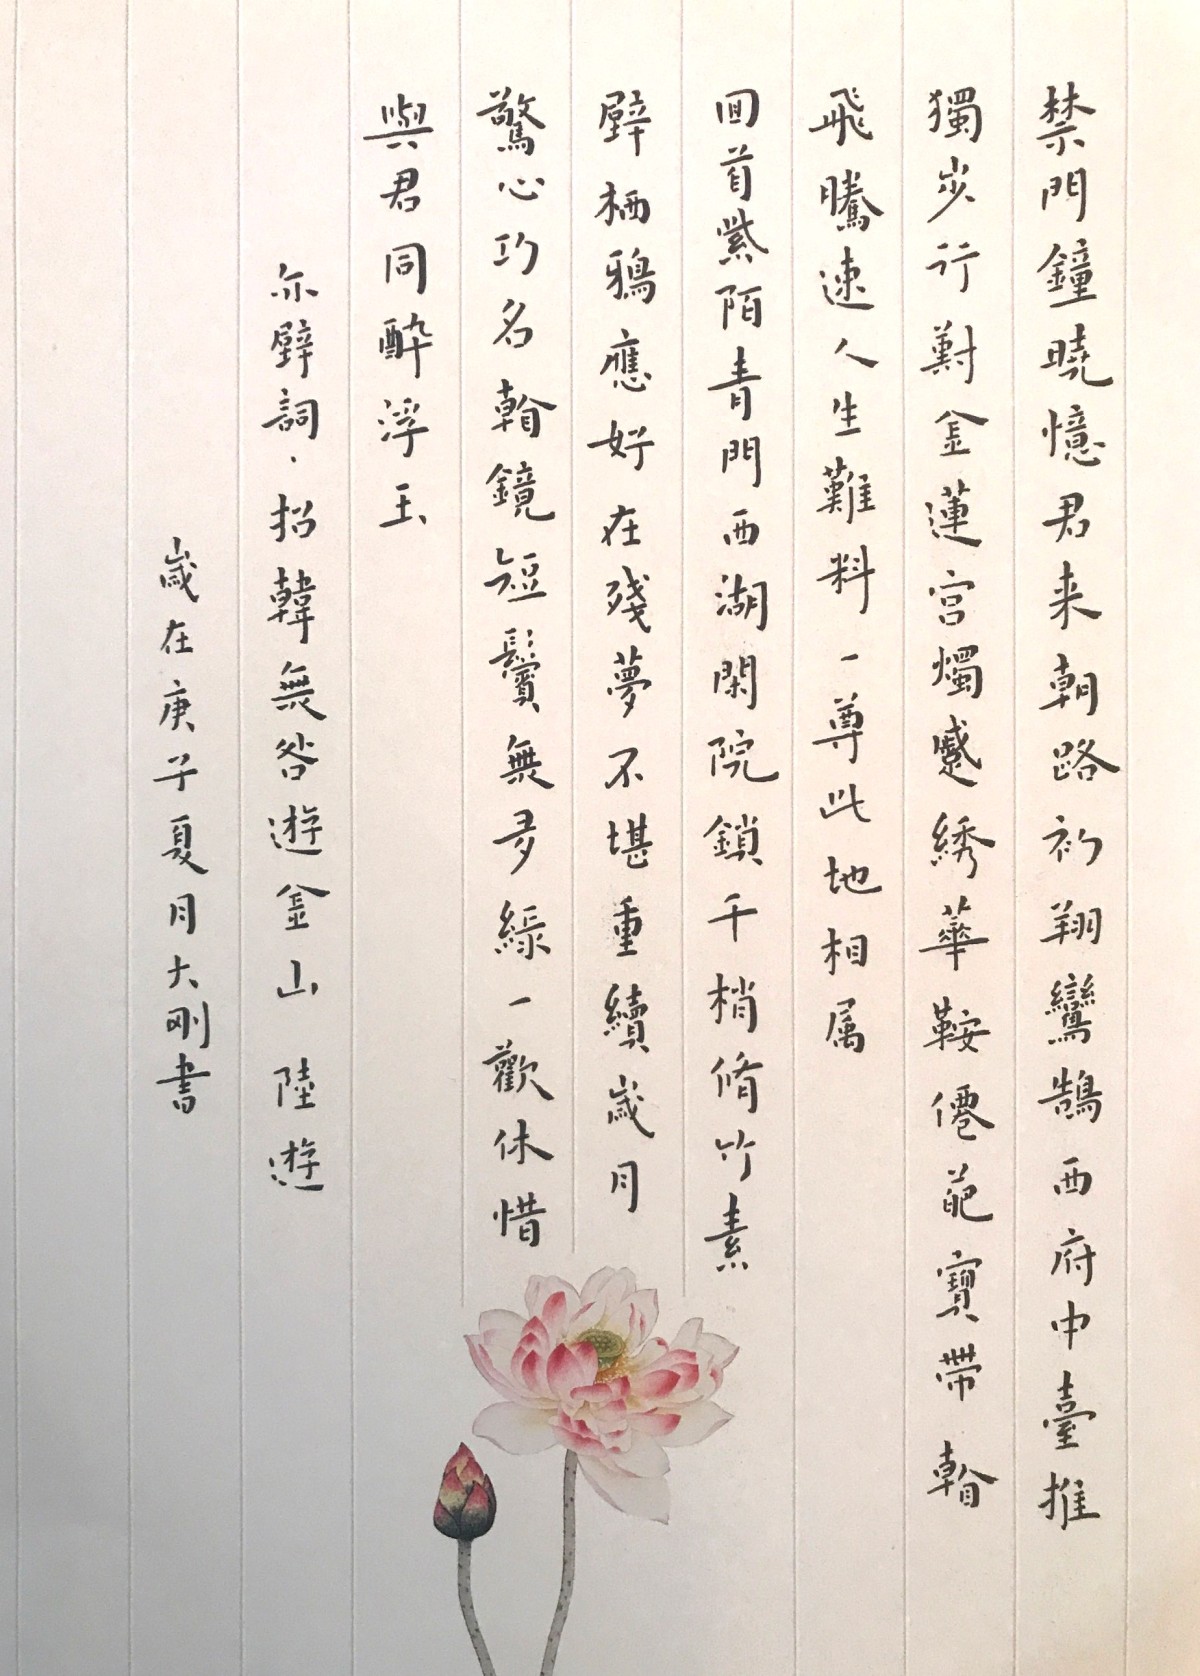 禁門鐘曉憶君来朝路初翔鸞鵠西府中臺推
獨步行對金蓮宮燭蹙綉華鞍僊葩寶帶看
飛騰速人生難料一尊此地相属
回首紫陌青門西湖閑院鎖千梢脩竹素
壁栖鴉應好在殘夢不堪重續歲月
驚心功名看鏡短鬢無多綠一歡休惜
與君同醉浮玉
赤壁詞·招韓無咎遊金山 陸遊
歲在庚子夏月大剛書